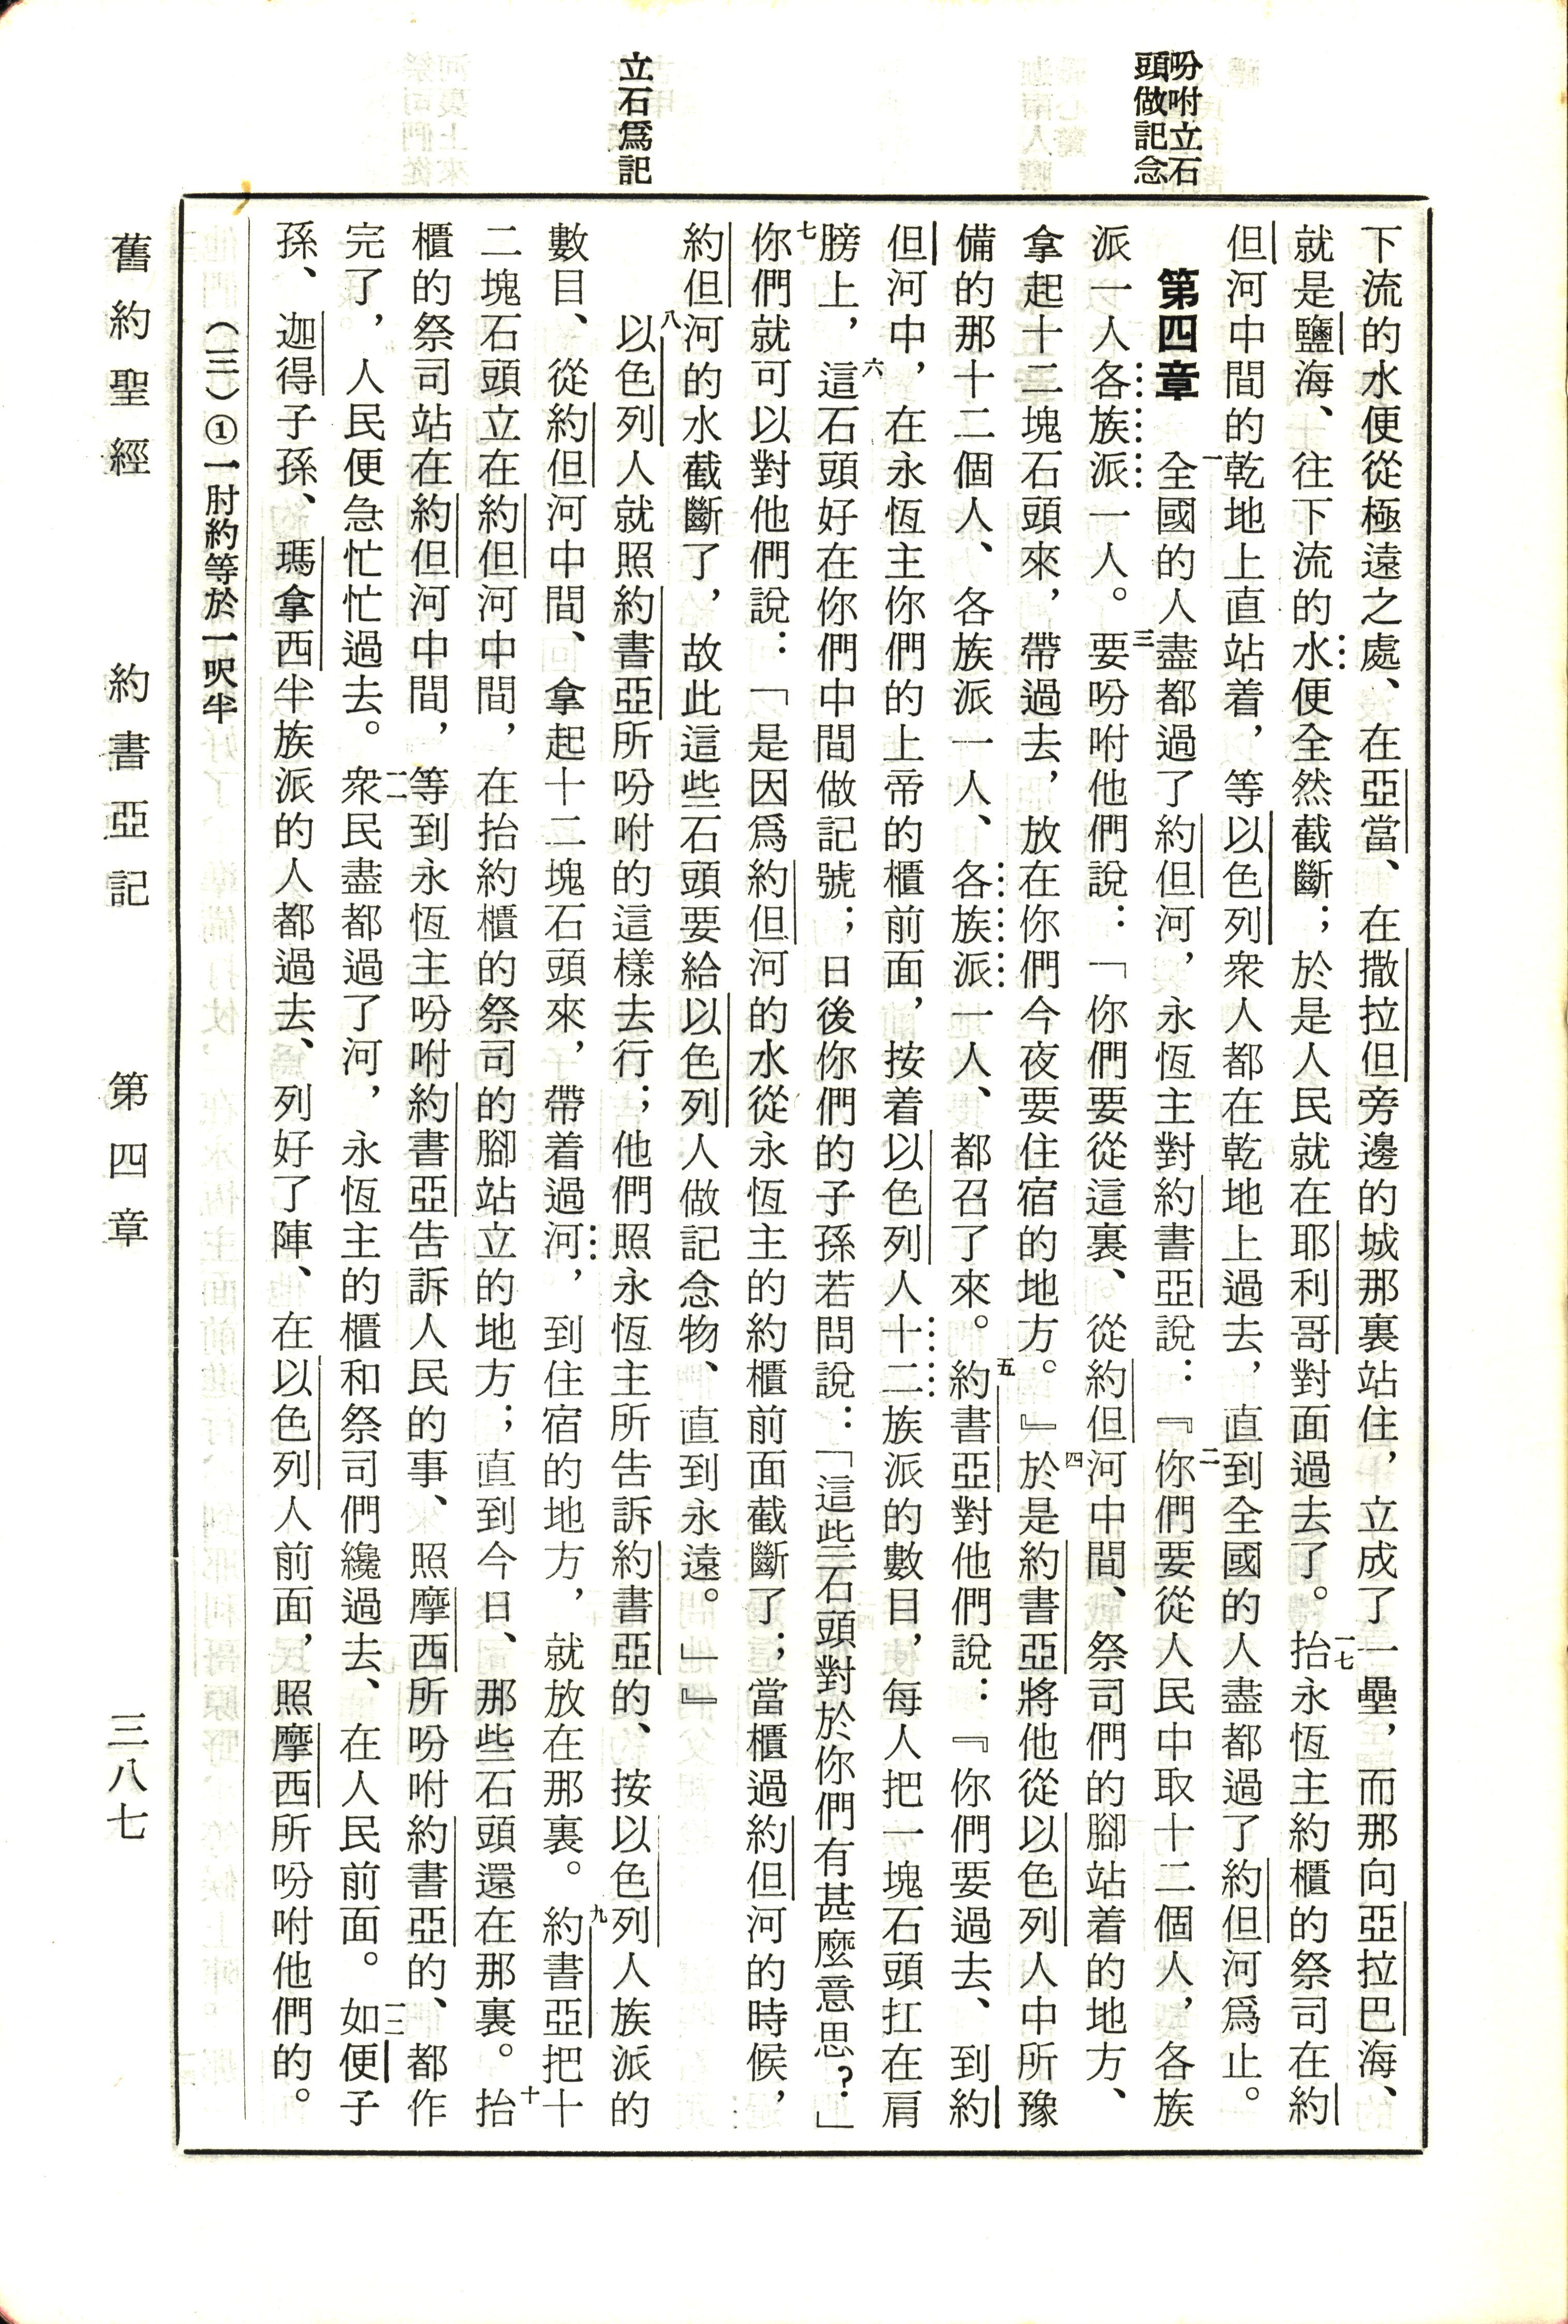 吩咐立石
頭做記念
立石爲記
下流的水便從極遠之處、在亞當、在撒拉但旁邊的城那裏站住，立成了一壘，而那向亞拉巴海、
就是鹽海、往下流的水便全然截斷；於是人民就在耶利哥對面過去了。一七抬永恆主約櫃的祭司在約
但河中間的乾地上直站着，等以色列衆人都在乾地上過去，直到全國的人盡都過了約但河爲止。
第四章　一全國的人盡都過了約但河，永恆主對約書亞說：『二你們要從人民中取十二個人，各族
派一人各族派一人。三要吩咐他們說：「你們要從這裏、從約但河中間、祭司們的腳站着的地方、
拿起十二塊石頭來，帶過去，放在你們今夜要住宿的地方。』四於是約書亞將他從以色列人中所豫
備的那十二個人、各族派一人、各族派一人、都召了來。五約書亞對他們說：『你們要過去、到約
但河中，在永恆主你們的上帝的櫃前面，按着以色列人十二族派的數目，每人把一塊石頭扛在肩
膀上，六這石頭好在你們中間做記號；日後你們的子孫若問說：「這些石頭對於你們有甚麼意思？」
七你們就可以對他們說：「是因爲約但河的水從永恆主的約櫃前面截斷了；當櫃過約但河的時候，
約但河的水截斷了，故此這些石頭要給以色列人做記念物、直到永遠。」』
八以色列人就照約書亞所吩咐的這樣去行；他們照永恆主所告訴約書亞的、按以色列人族派的
數目、從約但河中間、拿起十二塊石頭來，帶着過河，到住宿的地方，就放在那裏。九約書亞把十
二塊石頭立在約但河中間，在抬約櫃的祭司的腳站立的地方；直到今日、那些石頭還在那裏。十抬
櫃的祭司站在約但河中間，等到永恆主吩咐約書亞告訴人民的事、照摩西所吩咐約書亞的、都作
完了，人民便急忙忙過去。一一衆民盡都過了河，永恆主的櫃和祭司們纔過去、在人民前面。一二如便子
孫、迦得子孫、瑪拿西半族派的人都過去、列好了陣、在以色列人前面，照摩西所吩咐他們的。
（三）①一肘約等於一呎半
舊約聖經　約書亞記　第四章　三八七